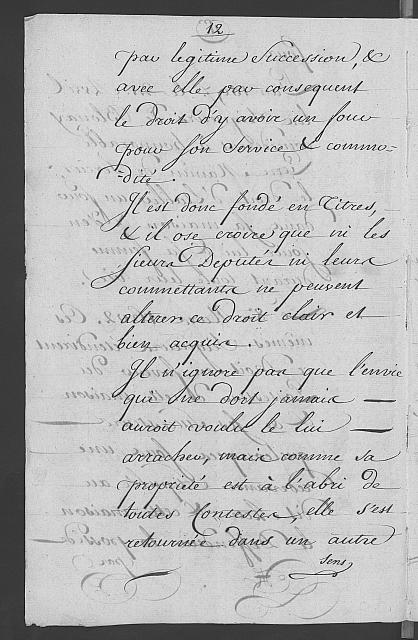 12
par legitime Succession, &
avec elle par consequent
le droit d'y avoir un four
pour son Service & commo-
-dité.
Il est donc fondé en Titres,
& il ose croire que ni les
Sieurs Deputés ni leurs
committants ne peuvent
alterer ce droit clair et
bien acquis.
Il n'ignore pas que l'envie
qui ne dort jamais
auroit voulu le lui
arracher, mais comme sa
propriété est à l'abri de
toutes Contestes, elle s'est
retournée dans un autre
sens